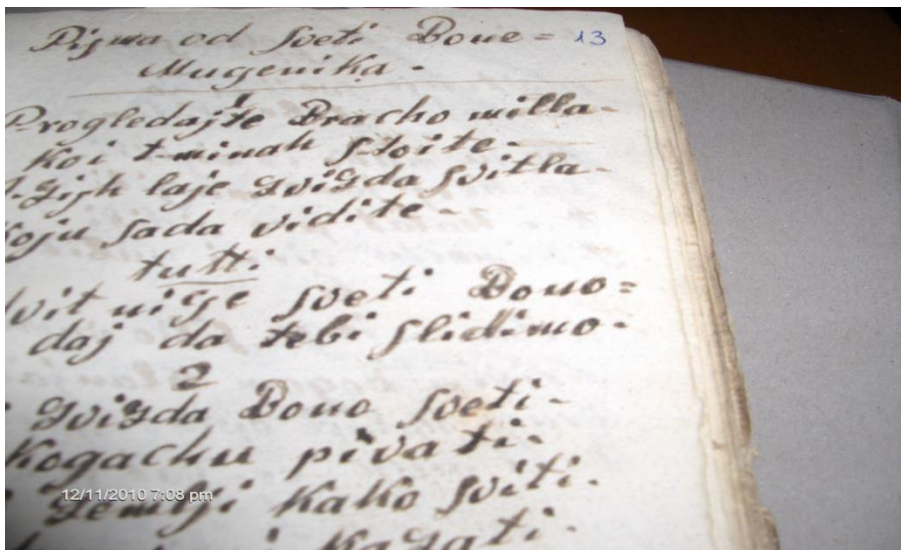 Pisma od Sveti Boue= 13
Mugenika.
1
Progledajte Bracho milla-
koi t-minah stoite-
laje zvizda svitla-
koju sada vidite-
tutti
Sveti Bouo=
daj da tebi slidimo-
2
zvizda Bouo sveti-
kogachu pivati-
Zemlji kako sviti-
kazati-
12/11/2010 7:08 pm